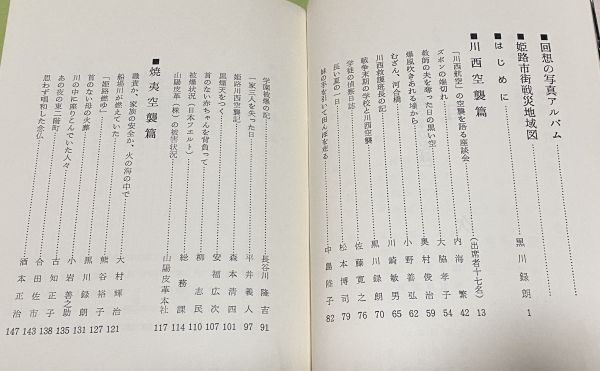 ■回想の写真アルバム
■姫路市街戦災地域図
■はじめに 黒川録朗 1
■川西空襲篇
「川西航空」の空襲を語る座談会 (出席者十七名) 13
ズボンの端切れ 内海繁 42
教師の夫を奪った日の黒い空 大脇孝子 54
爆風吹きあれる壕から 奥村俊治 59
むざん、河合橋 小野善弘 62
川西救護班長の記 川崎敏男 65
戦争末期の学校と川西空襲 黒川録朗 70
学徒の偵察日誌 佐藤寛之 76
長い夏の一日 松本博司 79
妹の手を引いて田んぼを走る 中島隆子 82
学園被爆の記 長谷川隆吉 91
一家三人を失った日 平井義人 97
姫路川西空襲記 森本清四 101
黒煙天をつく 安福広次 107
首のない赤ちゃんを背負って 柳志民 110
被爆状況(日本フエルト) 総務課 114
山陽皮革(株)の被害状況 山陽皮革本社 117
■焼夷空襲篇
職責か、家族の安全か、火の海の中で 大村輝治 121
船場川が燃えていた 熊谷裕子 127
「姫路燃ゆ」 黒川録朗 131
首のない母の火葬 小岩善之助 135
川の中に座りこんでいた人々 古知正子 138
あの夜の東二階町 合田佐市 143
思わず唱和した念仏 酒本正治 147